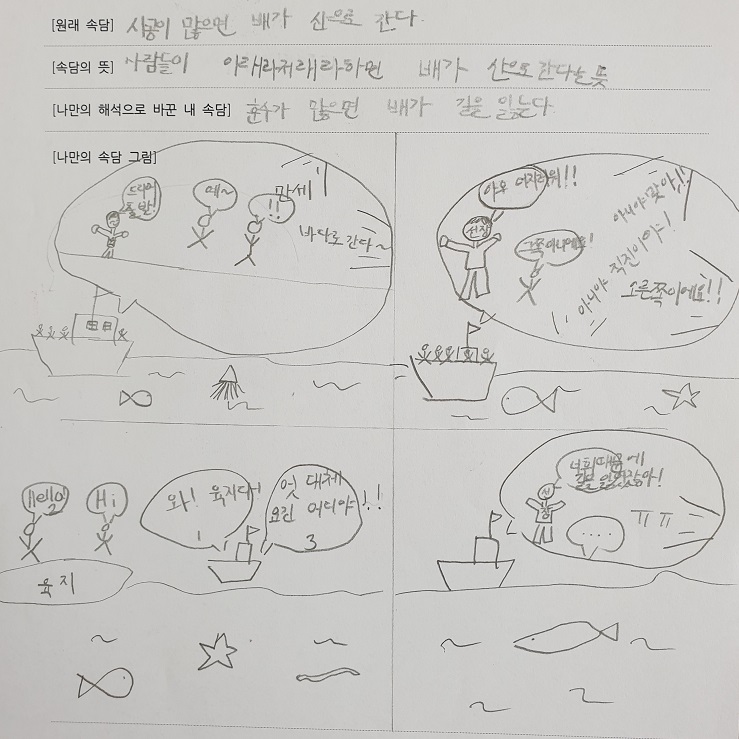 [원래 속담] 사공이 많으면 배가 산으로 간다.
[속담의 뜻] 사람들이 이래라저래라하면 배가 산으로 간다는 뜻
[나만의 해석으로 바꾼 내 속담] 훈수가 많으면 배가 길을 잃는다.
[나만의 속담 그림]
드디어
출발!
예~
!!
만세
바다로 간다~
아우 어지러워!!
선장
그쪽아니에요!
아니야 맞아!!
아니야 직진이야!
오른쪽이에요!!
Hello!
2
Hi
와! 육지다!
1
엇 대체
요긴 어디야!!
3
육지
너희때문에
길을 잃었잖아!
선
장
....
ㅠㅠ